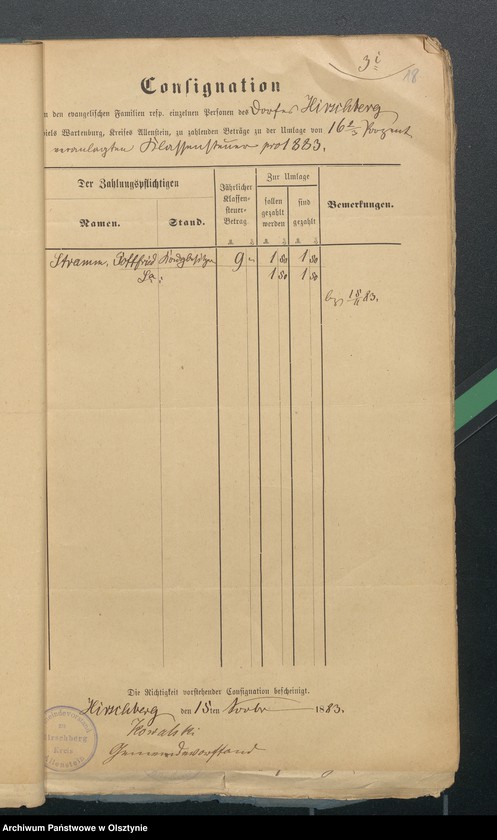 3 i
18
Consignation
n den evangelischen Familien resp. einzelnen Personen des Dorfes Hirschberg
iels Wartenburg, Kreises Allenstein, zu zahlenden Beträge zu der Umlage von 16 2/3 Prozent
veranlagten Klassensteuer pro 1883.
Der Zahlungspflichtigen
Namen.
Stand.
Jährlicher
Klassen-
steuer-
Betrag
Zur Umlage
sollen
gezahlt
werden
sind
gezahlt
Bemerkungen.
Stramm, Gottfried 9 - 1 50 1 50
Sa: 1 50 1 50
15/11 83.
Die Richtigkeit vorstehender Consignation bescheinigt.
Hirschberg den 15ten Novbr 1883.
Kowalski
Gemeindevorstand
meindevorstand
zu
Hirschberg
Kreis
Allenstein
Archiwum Państwowe w Olsztynie